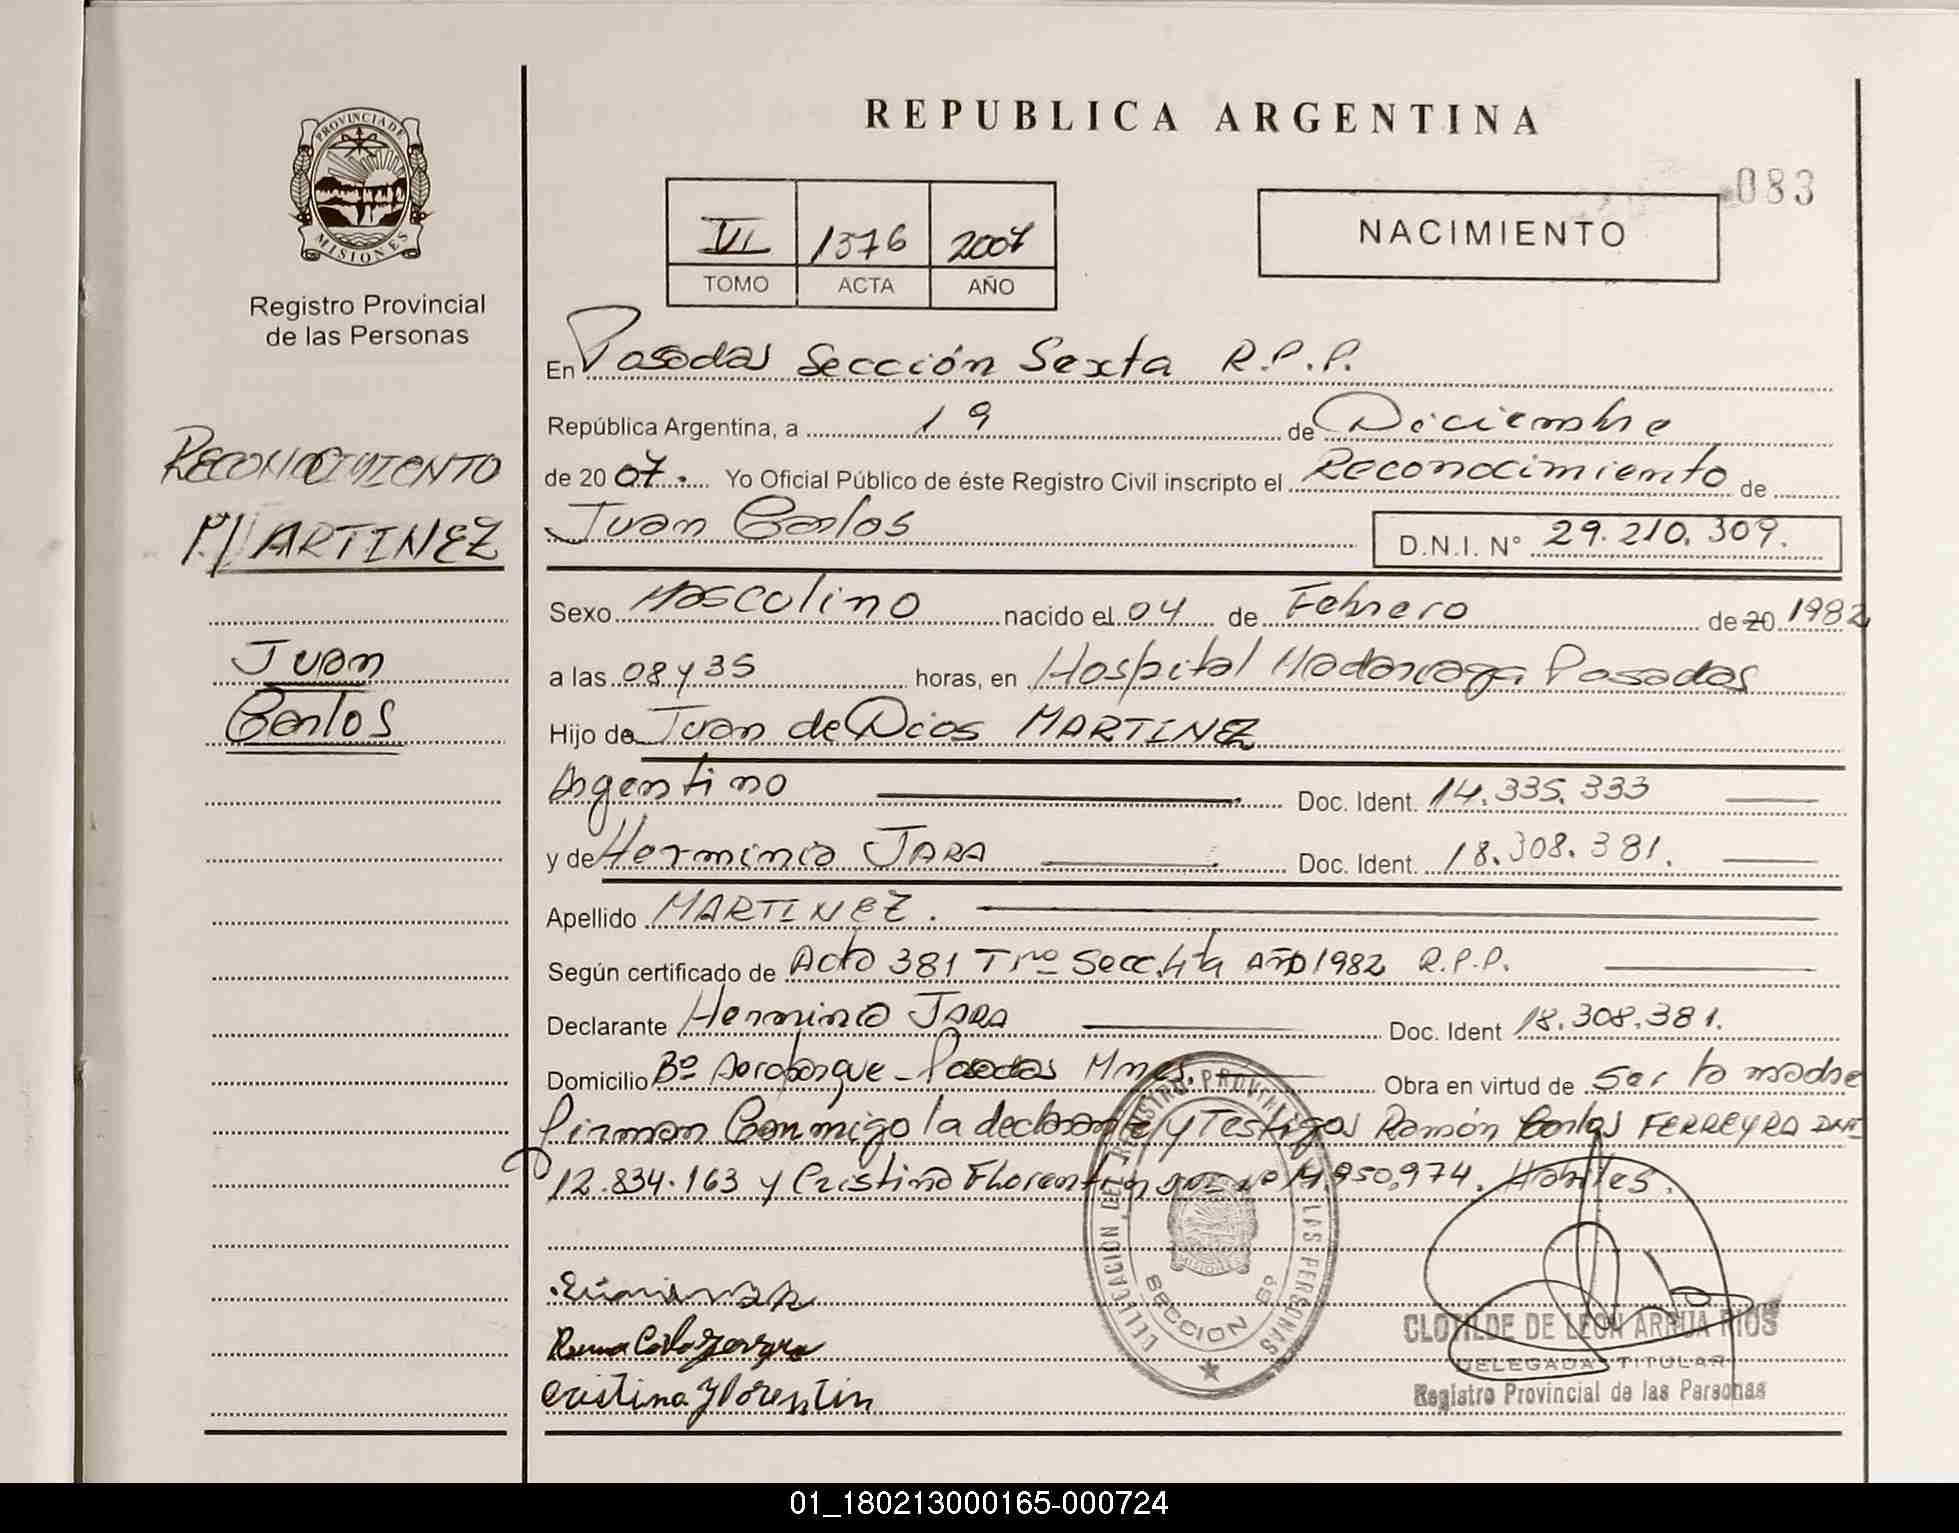 REPUBLICA ARGENTINA
083
PROVINCIA DE
MISIONES
Registro Provincial
de las Personas
VI 1376 2007
TOMO ACTA AÑO
NACIMIENTO
RECONOCIMIENTO
MARTINEZ
Juan
Carlos
En Posadas Sección Sexta R.P.P.
República Argentina, a 19 de Diciembre
de 2007. Yo Oficial Público de éste Registro Civil inscripto el Reconocimiento de
Juan Carlos D.N.I. N° 29.210.309.
Sexo Masculino nacido el 04 de Febrero de 20 1982
a las 08 y 35 horas, en Hospital Madariaga Posadas
Hijo de Juan de Dios MARTINEZ
Argentino Doc. Ident. 14.335.333
y de Herminia JARA Doc. Ident. 18.308.381.
Apellido MARTINEZ.
Según certificado de Acta 381 Tº Secc. 4ta Año 1982 R.P.P.
Declarante Herminia JARA Doc. Ident 18.308.381.
Domicilio Bº Aeroparque - Posadas Mnes. Obra en virtud de ser la madre
firman Conmigo la declarante y Testigos Ramón Carlos FERREYRA DNI
12.834.163 y Cristina Florentin 14.950.974. Hábiles.
DELEGACION DEL REGISTRO PROVINCIAL DE LAS PERSONAS
SECCION 6º
Cristina Florentin
CLOTILDE DE LEON ARRUA RIOS
DELEGADA TITULAR
Registro Provincial de las Personas
01_180213000165-000724